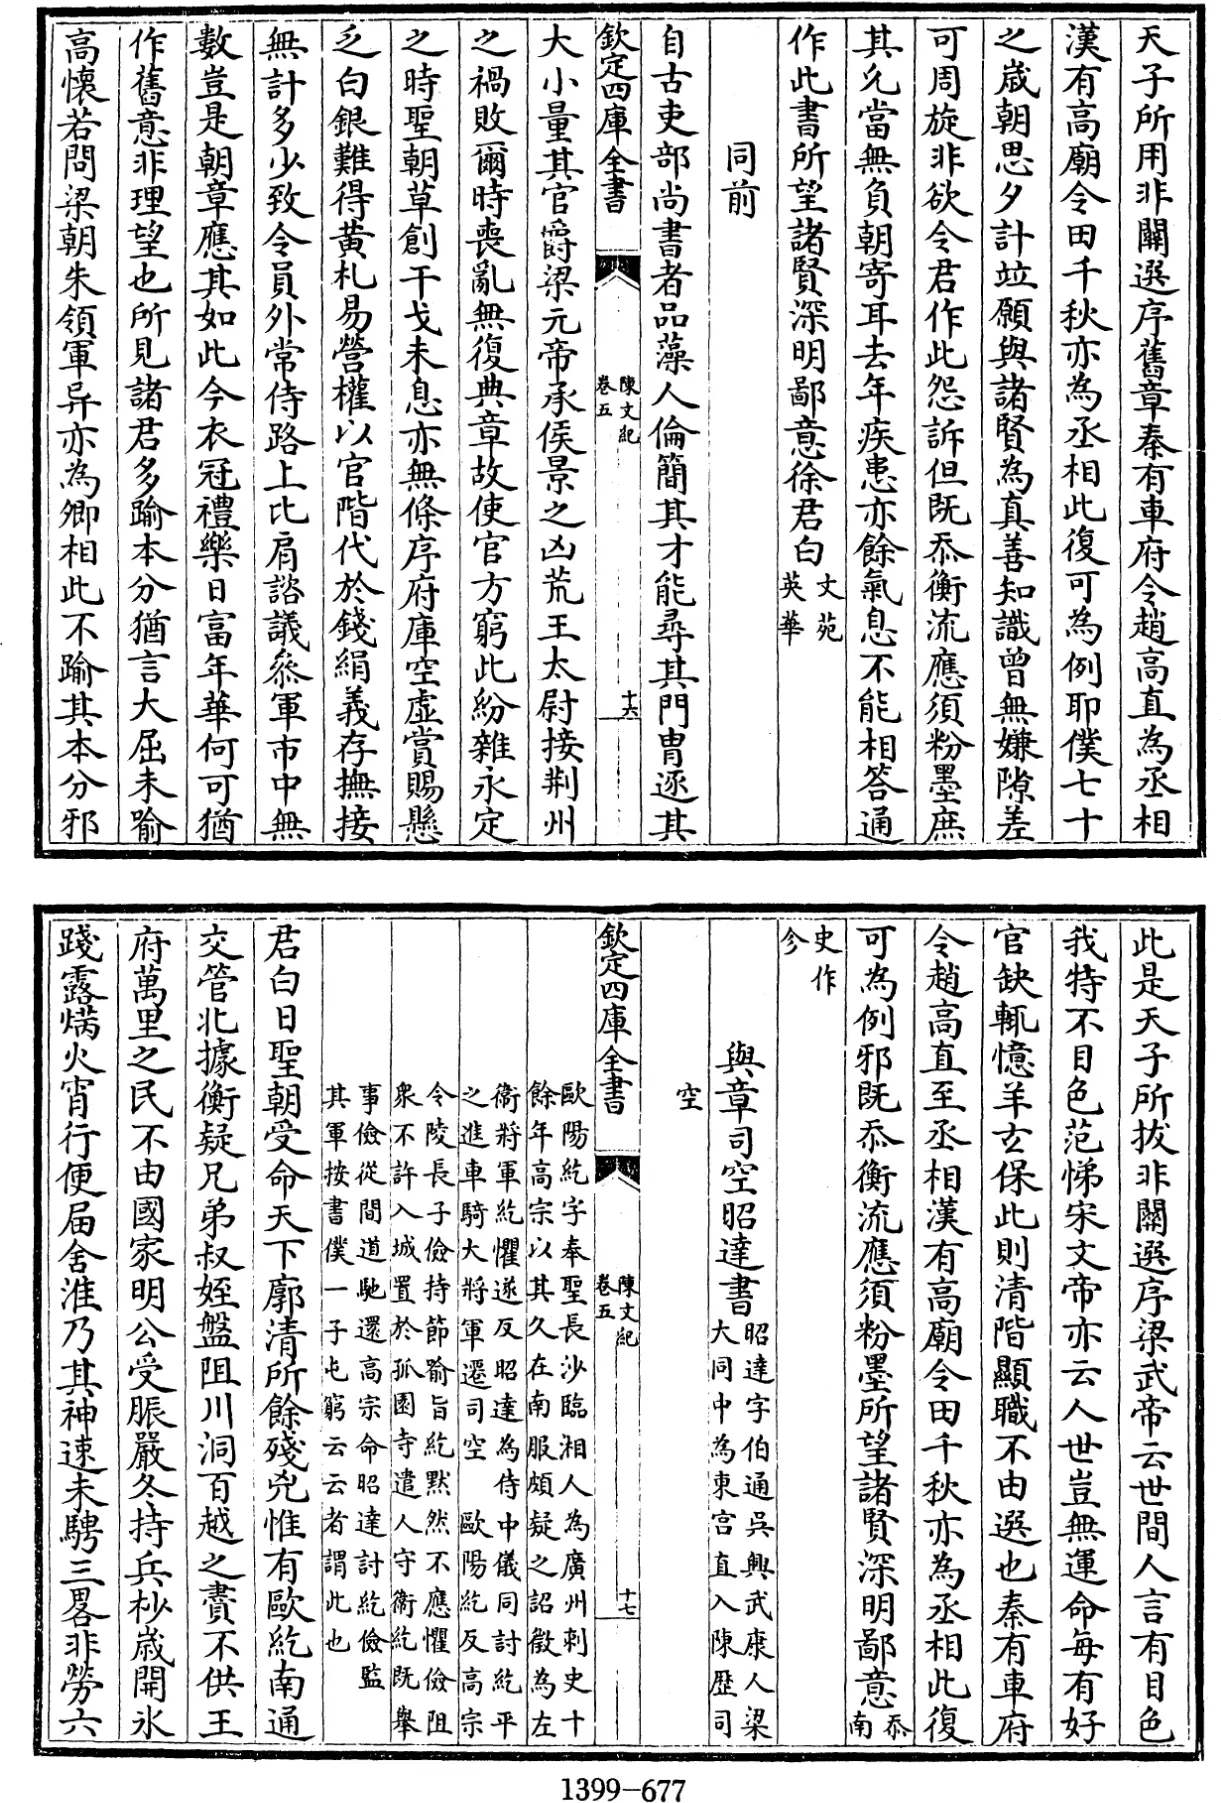 天子所用非關選序舊章秦有車府令趙高直為丞相
漢有高廟令田千秋亦為丞相此復可為例耶僕七十
之歲朝思夕計竝願與諸賢為真善知識曾無嫌隙差
可周旋非欲令君作此怨訴但既忝衡流應須粉墨庶
其允當無負朝寄耳去年疾患亦餘氣息不能相答通
作此書所望諸賢深明鄙意徐君白文苑
英華
同前
自古吏部尚書者品藻人倫簡其才能尋其門胄逐其
欽定四庫全書
陳文紀
卷五
十六
大小量其官爵梁元帝承侯景之凶荒王太尉接荆州
之禍敗爾時喪亂無復典章故使官方窮此紛雜永定
之時聖朝草創干戈未息亦無條序府庫空虛賞賜懸
乏白銀難得黃札易營權以官階代於錢絹義存撫接
無計多少致令員外常侍路上比肩諮議叅軍市中無
數豈是朝章應其如此今衣冠禮樂日富年華何可猶
作舊意非理望也所見諸君多踰本分猶言大屈未喻
高懷若問梁朝朱領軍异亦為卿相此不踰其本分邪
此是天子所拔非關選序梁武帝云世間人言有目色
我特不目色范悌宋文帝亦云人世豈無運命每有好
官缺輒憶羊玄保此則清階顯職不由選也秦有車府
令趙高直至丞相漢有高廟令田千秋亦為丞相此復
可為例邪既忝衡流應須粉墨所望諸賢深明鄙意忝
南
史作
參
與章司空昭達書昭達字伯通吳興武康人梁
大同中為東宫直入陳歷司
空
欽定四庫全書
陳文紀
卷五
十七
歐陽紇字奉聖長沙臨湘人為廣州刺史十
餘年高宗以其久在南服頗疑之詔徵為左
衞將軍紇懼遂反昭達為侍中儀同討紇平
之進車騎大將軍遷司空　歐陽紇反高宗
令陵長子儉持節喻旨紇黙然不應懼儉阻
衆不許入城置於孤園寺遣人守衞紇既舉
事儉從間道馳還高宗命昭達討紇儉監
其軍按書僕一子屯窮云云者謂此也
君白日聖朝受命天下廓清所餘殘兇惟有歐紇南通
交管北據衡疑兄弟叔姪盤阻川洞百越之賮不供王
府萬里之民不由國家明公受脤嚴冬持兵杪歲開氷
踐露爇火宵行便届舍淮乃其神速未騁三畧非勞六
1399-677